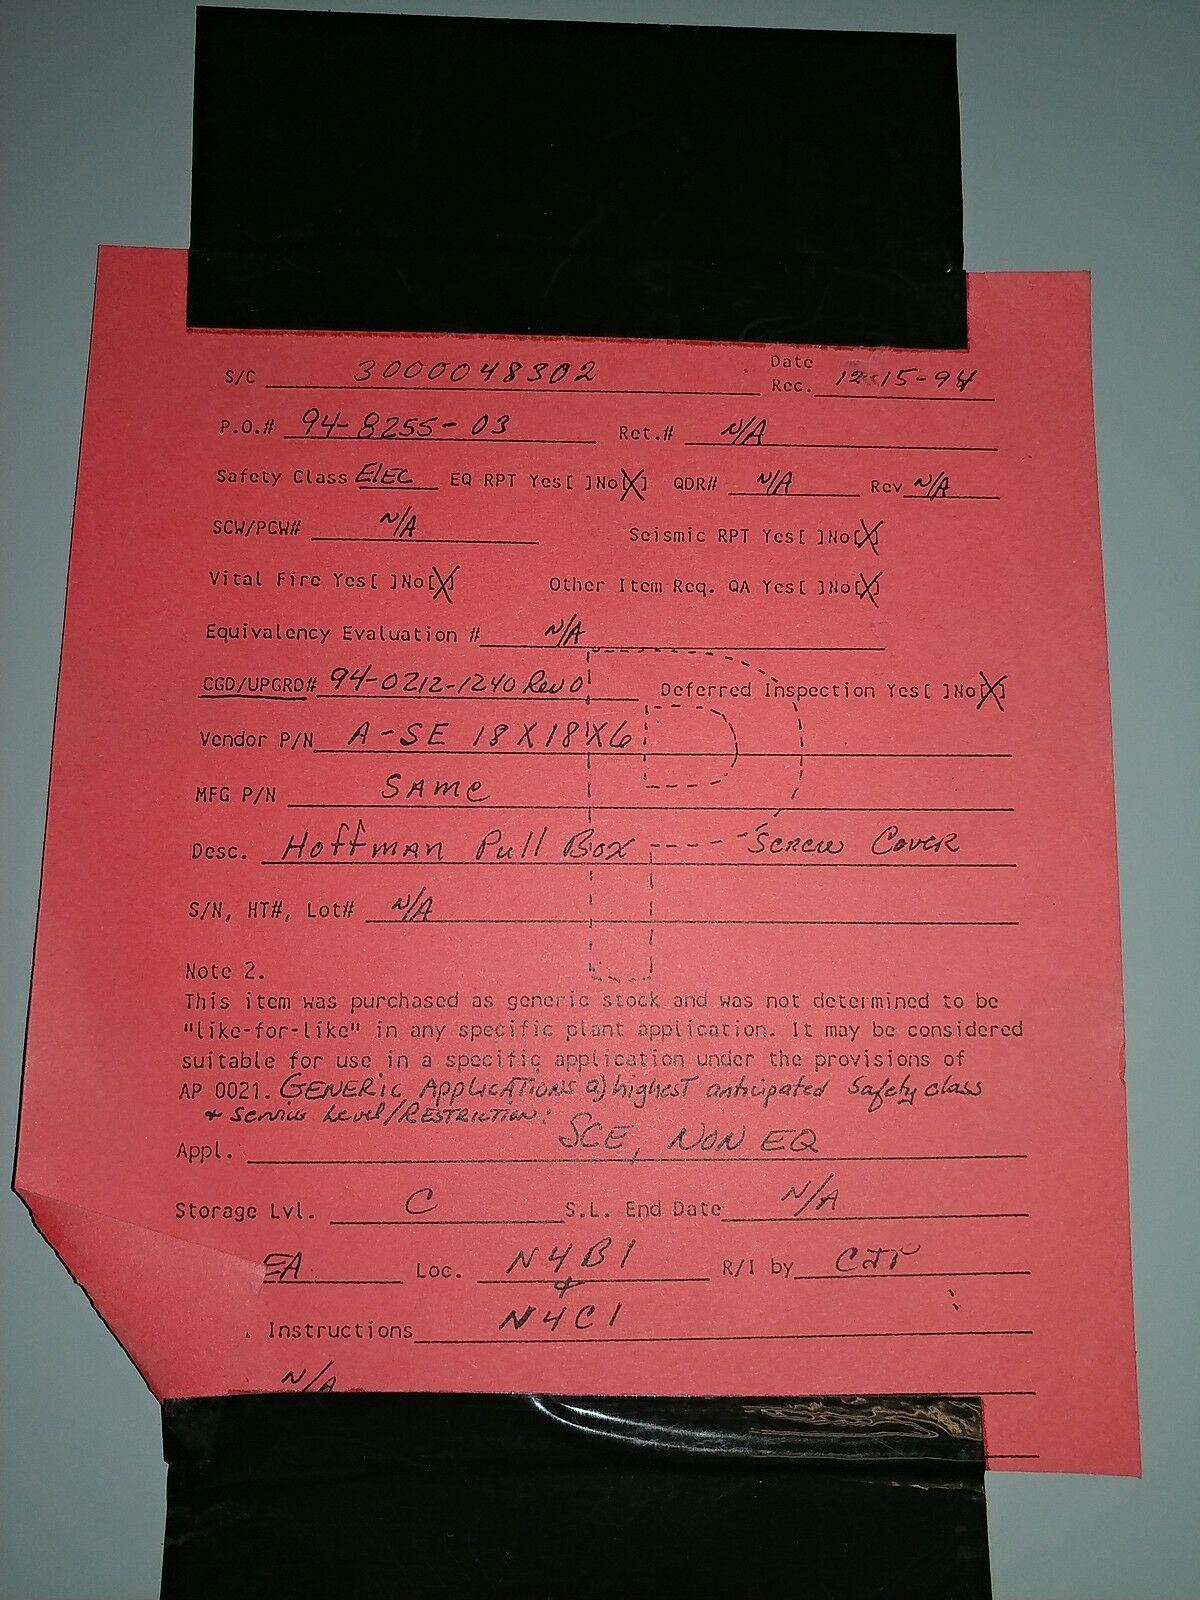 Date
S/C 3000048302 Rec. 12-15-94
P.O.# 94-8255-03 Ret.# N/A
Safety Class Elec EQ RPT Yes[ ]No[X] QDR# N/A Rev N/A
SCW/PCW# N/A Seismic RPT Yes[ ]No[X]
Vital Fire Yes[ ]No[X] Other Item Req. QA Yes[ ]No[X]
Equivalency Evaluation # N/A
CGD/UPGRD# 94-0212-1240 Rev 0 Deferred Inspection Yes[ ]No[X]
Vendor P/N A-SE 18X18X6
MFG P/N SAME
Desc. Hoffman Pull Box Screw Cover
S/N, HT#, Lot# N/A
Note 2.
This item was purchased as generic stock and was not determined to be
"like-for-like" in any specific plant application. It may be considered
suitable for use in a specific application under the provisions of
AP 0021. GENERIC APPLICATIONS a) highest anticipated Safety class
+ Service Level/RESTRICTION:
Appl. SCE, NON EQ
Storage Lvl. C S.L. End Date N/A
EA Loc. N4B1 R/I by
&
Instructions N4C1
N/A